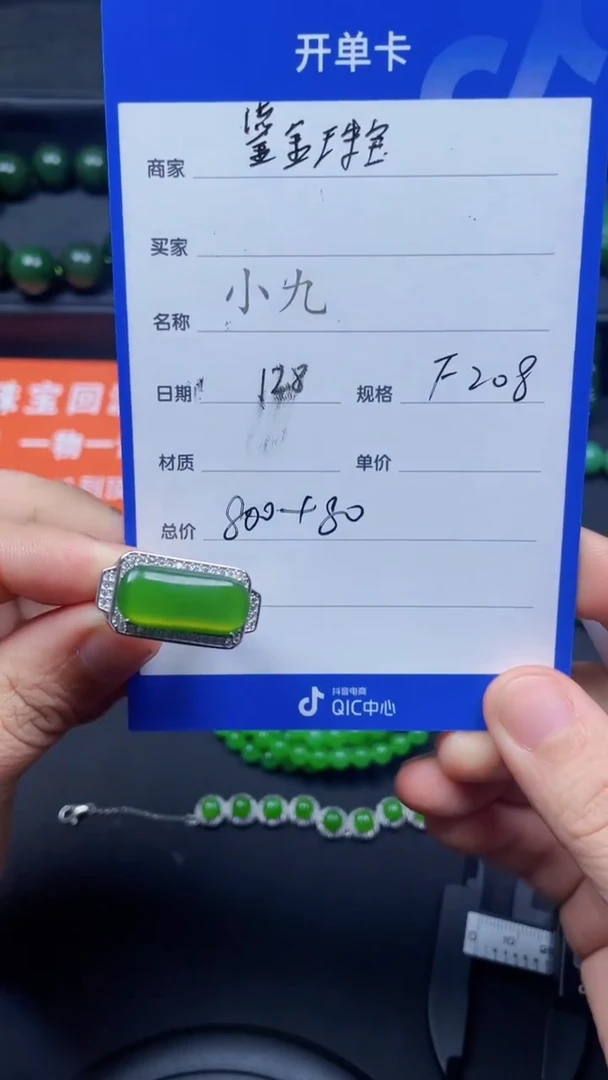 开单卡
商家 鎏金珠宝
买家
名称 小九
日期 128 规格 F208
材质 单价
总价 800+80
抖音电商
QIC中心
珠宝回
一物一